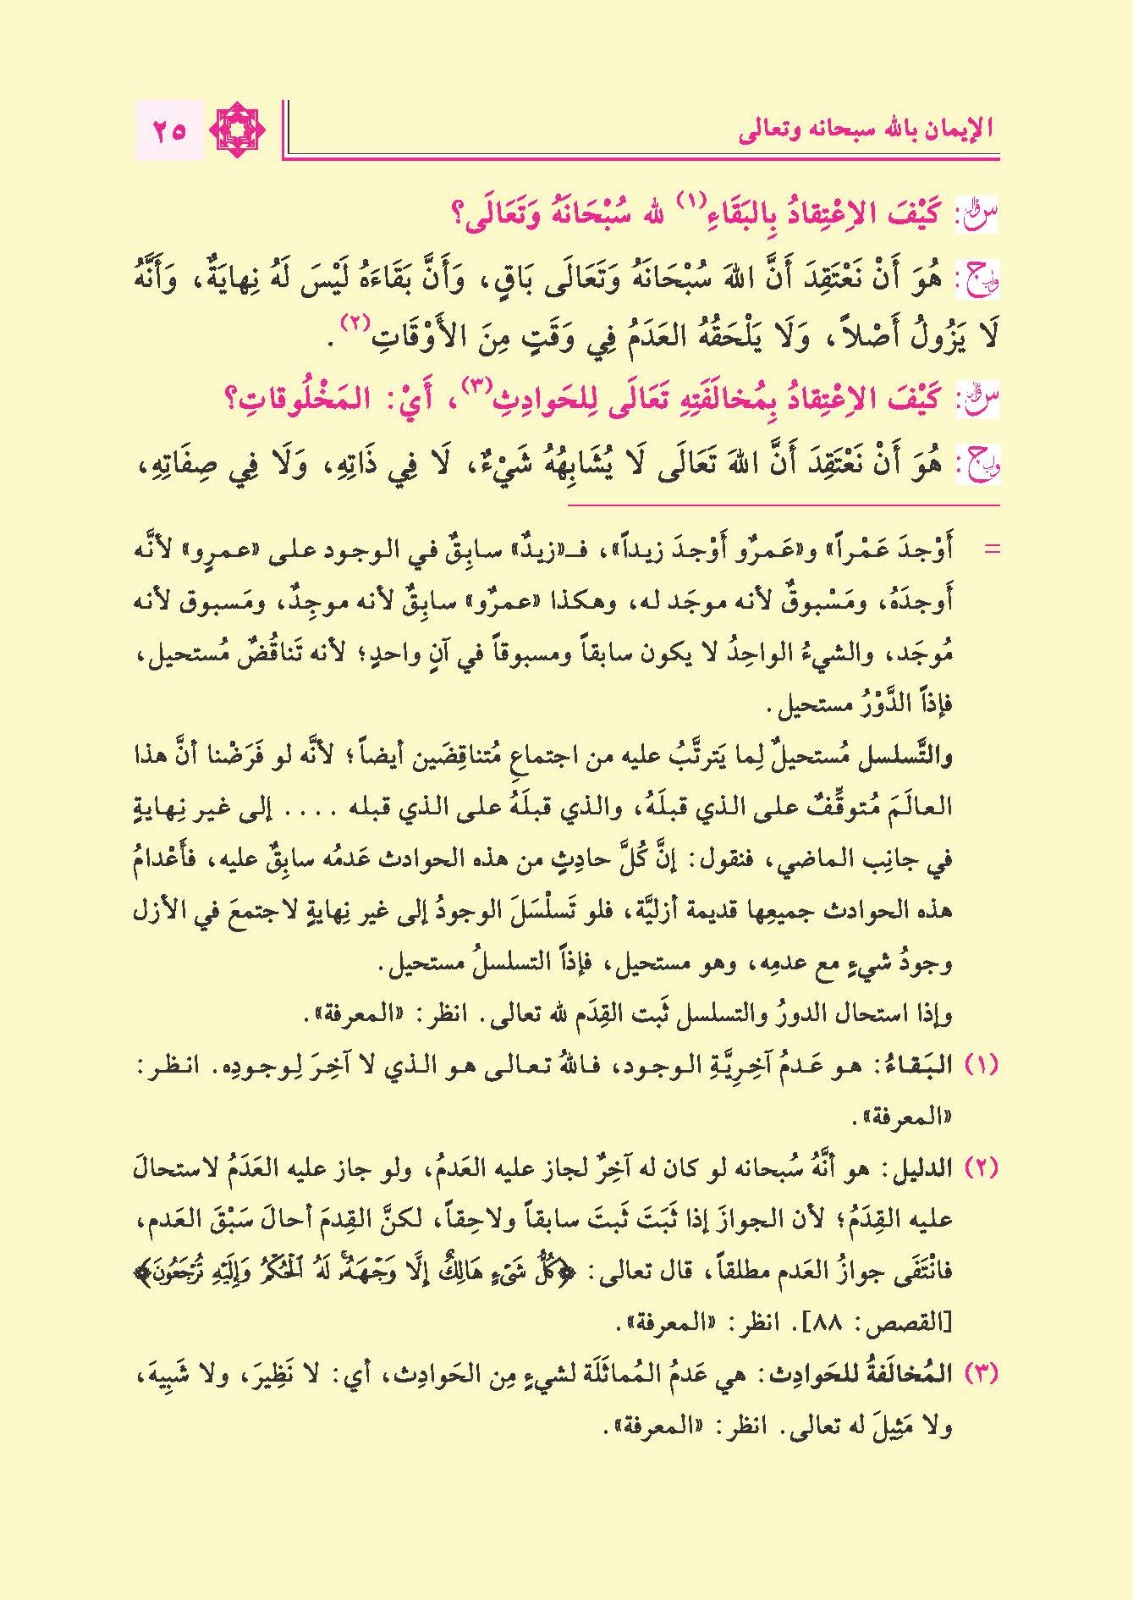 الإيمان بالله سبحانه وتعالى
٢٥
سؤال: كَيْفَ الاِعْتِقادُ بِالبَقَاءِ(١) لله سُبْحَانَهُ وَتَعَالَى؟
جواب: هُوَ أَنْ نَعْتَقِدَ أَنَّ اللهَ سُبْحَانَهُ وَتَعَالَى بَاقٍ، وَأَنَّ بَقَاءَهُ لَيْسَ لَهُ نِهايَةٌ، وَأَنَّهُ
لَا يَزُولُ أَصْلاً، وَلَا يَلْحَقُهُ العَدَمُ فِي وَقَتٍ مِنَ الأَوْقَاتِ(٢).
سؤال: كَيْفَ الاِعْتِقادُ بِمُخالَفَتِهِ تَعَالَى لِلحَوادِثِ(٣)، أَيْ: المَخْلُوقاتِ؟
جواب: هُوَ أَنْ نَعْتَقِدَ أَنَّ اللهَ تَعَالَى لَا يُشَابِهُهُ شَيْءٌ، لَا فِي ذَاتِهِ، وَلَا فِي صِفَاتِهِ،
= أَوْجدَ عَمْراً» و«عَمرٌو أَوْجدَ زيداً»، فـ«زيدٌ» سابِقٌ في الوجود على «عمرٍو» لأنَّه
أَوجدَهُ، ومَسْبوقٌ لأنه موجَد له، وهكذا «عمرٌو» سابِقٌ لأنه موجِدٌ، ومَسبوق لأنه
مُوجَد، والشيءُ الواحِدُ لا يكون سابقاً ومسبوقاً في آنٍ واحدٍ؛ لأنه تَناقُضٌ مُستحيل،
فإذاً الدَّوْرُ مستحيل.
والتَّسلسل مُستحيلٌ لِما يَترتَّبُ عليه من اجتماعِ مُتناقِضَين أيضاً؛ لأنَّه لو فَرَضْنا أنَّ هذا
العالَمَ مُتوقِّفٌ على الذي قبلَهُ، والذي قبلَهُ على الذي قبله .... إلى غير نِهايةٍ
في جانِب الماضي، فنقول: إنَّ كُلَّ حادِثٍ من هذه الحوادث عَدمُه سابِقٌ عليه، فأَعْدامُ
هذه الحوادث جميعِها قديمة أزليَّة، فلو تَسلْسَلَ الوجودُ إلى غير نِهايةٍ لاجتمعَ في الأزل
وجودُ شيءٍ مع عدمِه، وهو مستحيل، فإذاً التسلسلُ مستحيل.
وإذا استحال الدورُ والتسلسل ثَبت القِدَم لله تعالى. انظر: «المعرفة».
(١) البَقاءُ: هو عَدمُ آخِرِيَّةِ الوجود، فاللهُ تعالى هو الذي لا آخِرَ لِوجودِه. انظر:
«المعرفة».
(٢) الدليل: هو أنَّهُ سُبحانه لو كان له آخِرٌ لجاز عليه العَدمُ، ولو جاز عليه العَدَمُ لاستحالَ
عليه القِدَمُ؛ لأن الجوازَ إذا ثَبَتَ ثَبتَ سابقاً ولاحِقاً، لكنَّ القِدمَ أحالَ سَبْقَ العَدم،
فانْتَفَى جوازُ العَدم مطلقاً، قال تعالى: ﴿كُلُّ شَىْءٍ هَالِكٌ إِلَّا وَجْهَهُۥ لَهُ ٱلْحُكْمُ وَإِلَيْهِ تُرْجَعُونَ﴾
[القصص: ٨٨]. انظر: «المعرفة».
(٣) المُخالَفةُ للحَوادِث: هي عَدمُ المُماثَلَة لشيءٍ مِن الحَوادِث، أي: لا نَظِيرَ، ولا شَبِيهَ،
ولا مَثِيلَ له تعالى. انظر: «المعرفة».